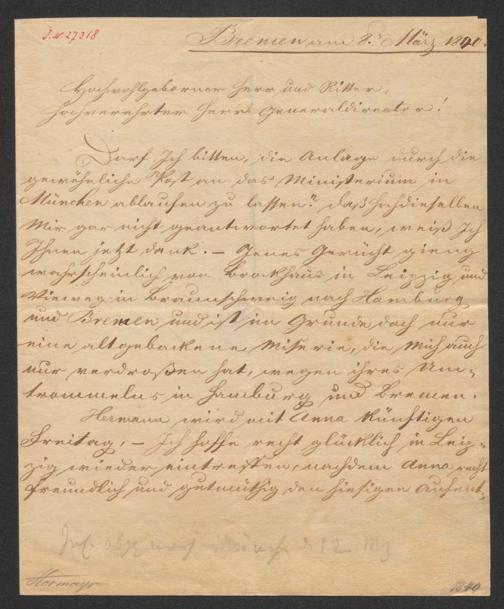 J.N. 27318
Bremen am 8. März 1840.
Hochwohlgeborner Herr und Ritter,
Hochverehrter Herr Generaldirector!
Darf Ich bitten, die Anlage durch die
gewöhnliche Post an das Ministerium in
München ablaufen zu lassen? Daß Hochdieselben
Mir gar nicht geantwortet haben, weiß Ich
Ihnen jetzt Dank. — Jenes Gerücht gieng
wahrscheinlich von Brockhaus in Leipzig und
Vieweg in Braunschweig nach Hamburg
und Bremen und ist im Grunde doch nur
eine altgebackene Misèrie, die Mich auch
nur verdroßen hat, wegen ihres Um-
trommelns in Hamburg und Bremen.
Hermann wird mit Anna künftigen
Freitag, — Ich hoffe recht glücklich in Leip-
zig wieder eintreffen, nachdem Anna recht
freundlich und gutmüthig den hiesigen Aufent-
Hormayr
1840